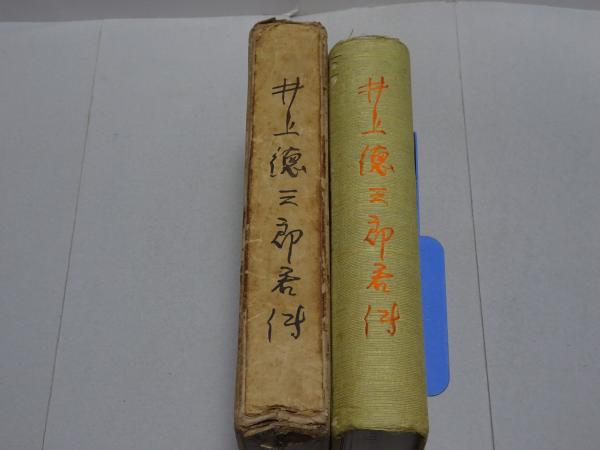 井上徳三郎君伝
井上徳三郎君伝